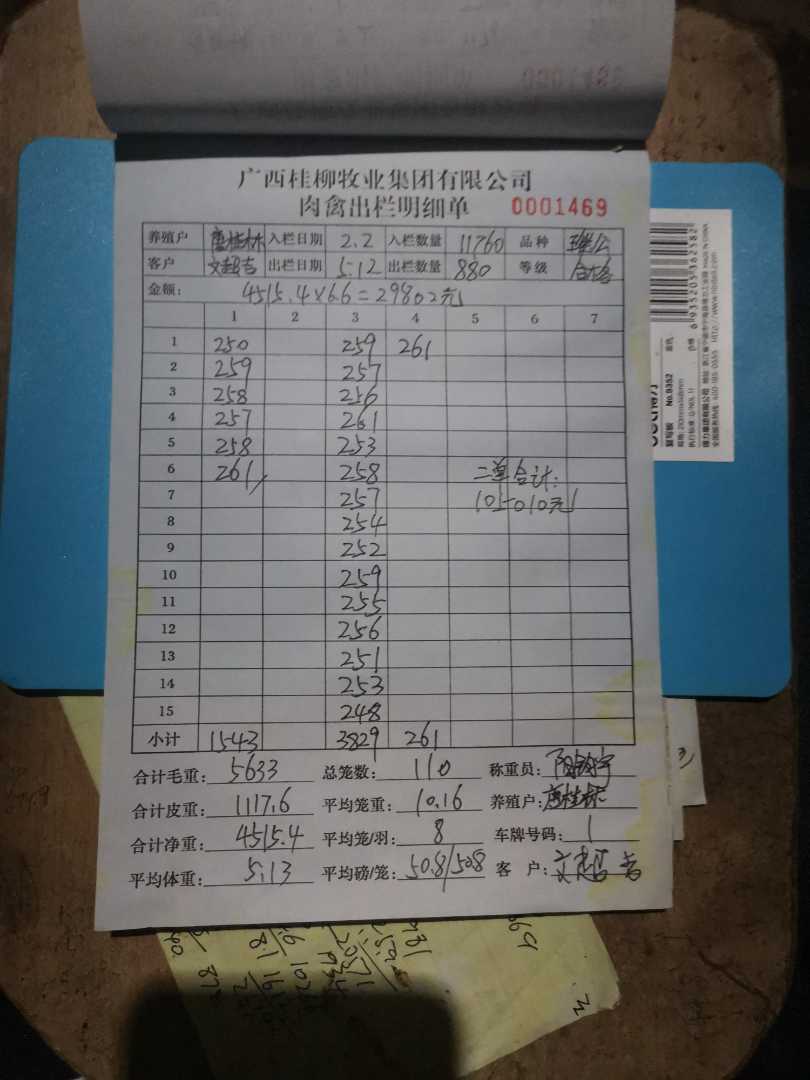 广西桂柳牧业集团有限公司
肉禽出栏明细单 0001469
养殖户 唐桂林 入栏日期 2.2 入栏数量 11760 品种
客户 文超吉 出栏日期 5.12 出栏数量 880 等级 合格
金额: 4515.4×6.6=29802元
1 2 3 4 5 6 7
1 250 259 261
2 259 257
3 258 256
4 257 261
5 258 253
6 261 258 二单合计:
7 257 105010元
8 254
9 252
10 259
11 255
12 256
13 251
14 253
15 248
小计 1543 3829 261
合计毛重: 5633 总笼数: 110 称重员:
合计皮重: 1117.6 平均笼重: 10.16 养殖户: 唐桂林
合计净重: 4515.4 平均笼/羽: 8 车牌号码: 1
平均体重: 5.13 平均磅/笼: 50.8/50.8 客 户: 文超吉
6935205362582
复写板 No.9352